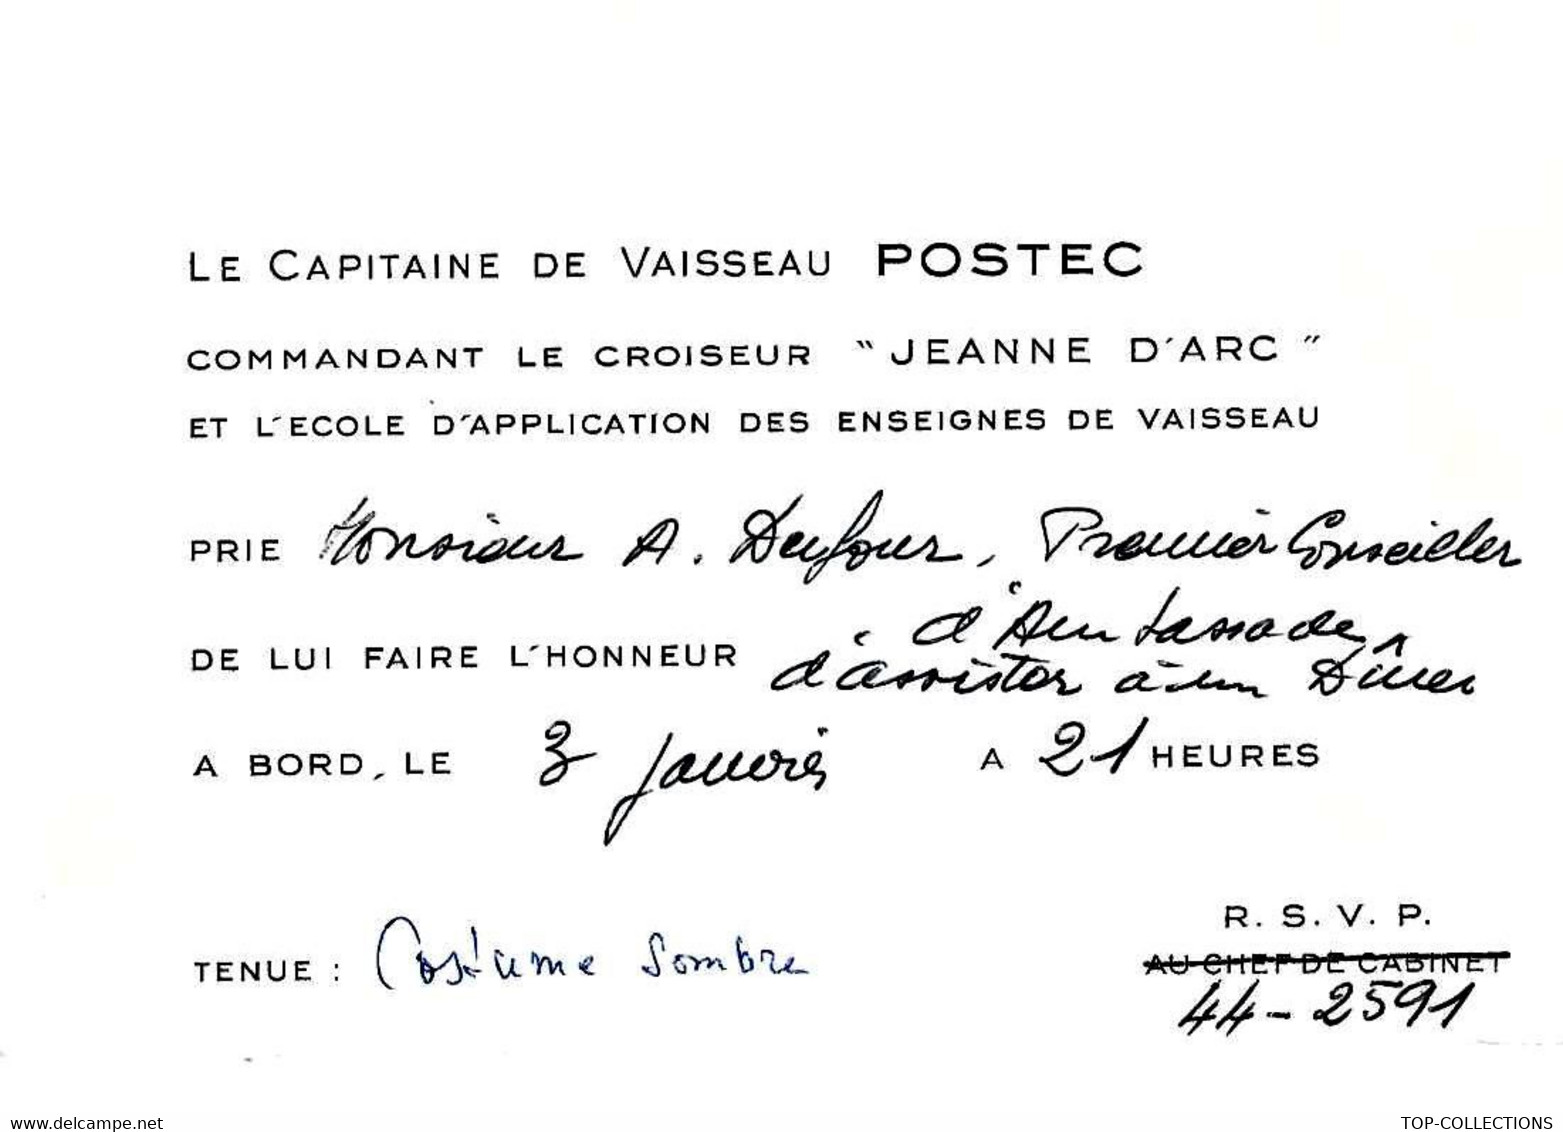 LE CAPITAINE DE VAISSEAU POSTEC
COMMANDANT LE CROISEUR "JEANNE D'ARC"
ET L'ECOLE D'APPLICATION DES ENSEIGNES DE VAISSEAU
PRIE Monsieur A. Dufour, Premier Conseiller
d'Ambassade,
DE LUI FAIRE L'HONNEUR d'assister à un Dîner
A BORD, LE 3 Janvier A 21 HEURES
R. S. V. P.
AU CHEF DE CABINET
TENUE : Costume Sombre
44-2591
TOP-COLLECTIONS
www.delcampe.net